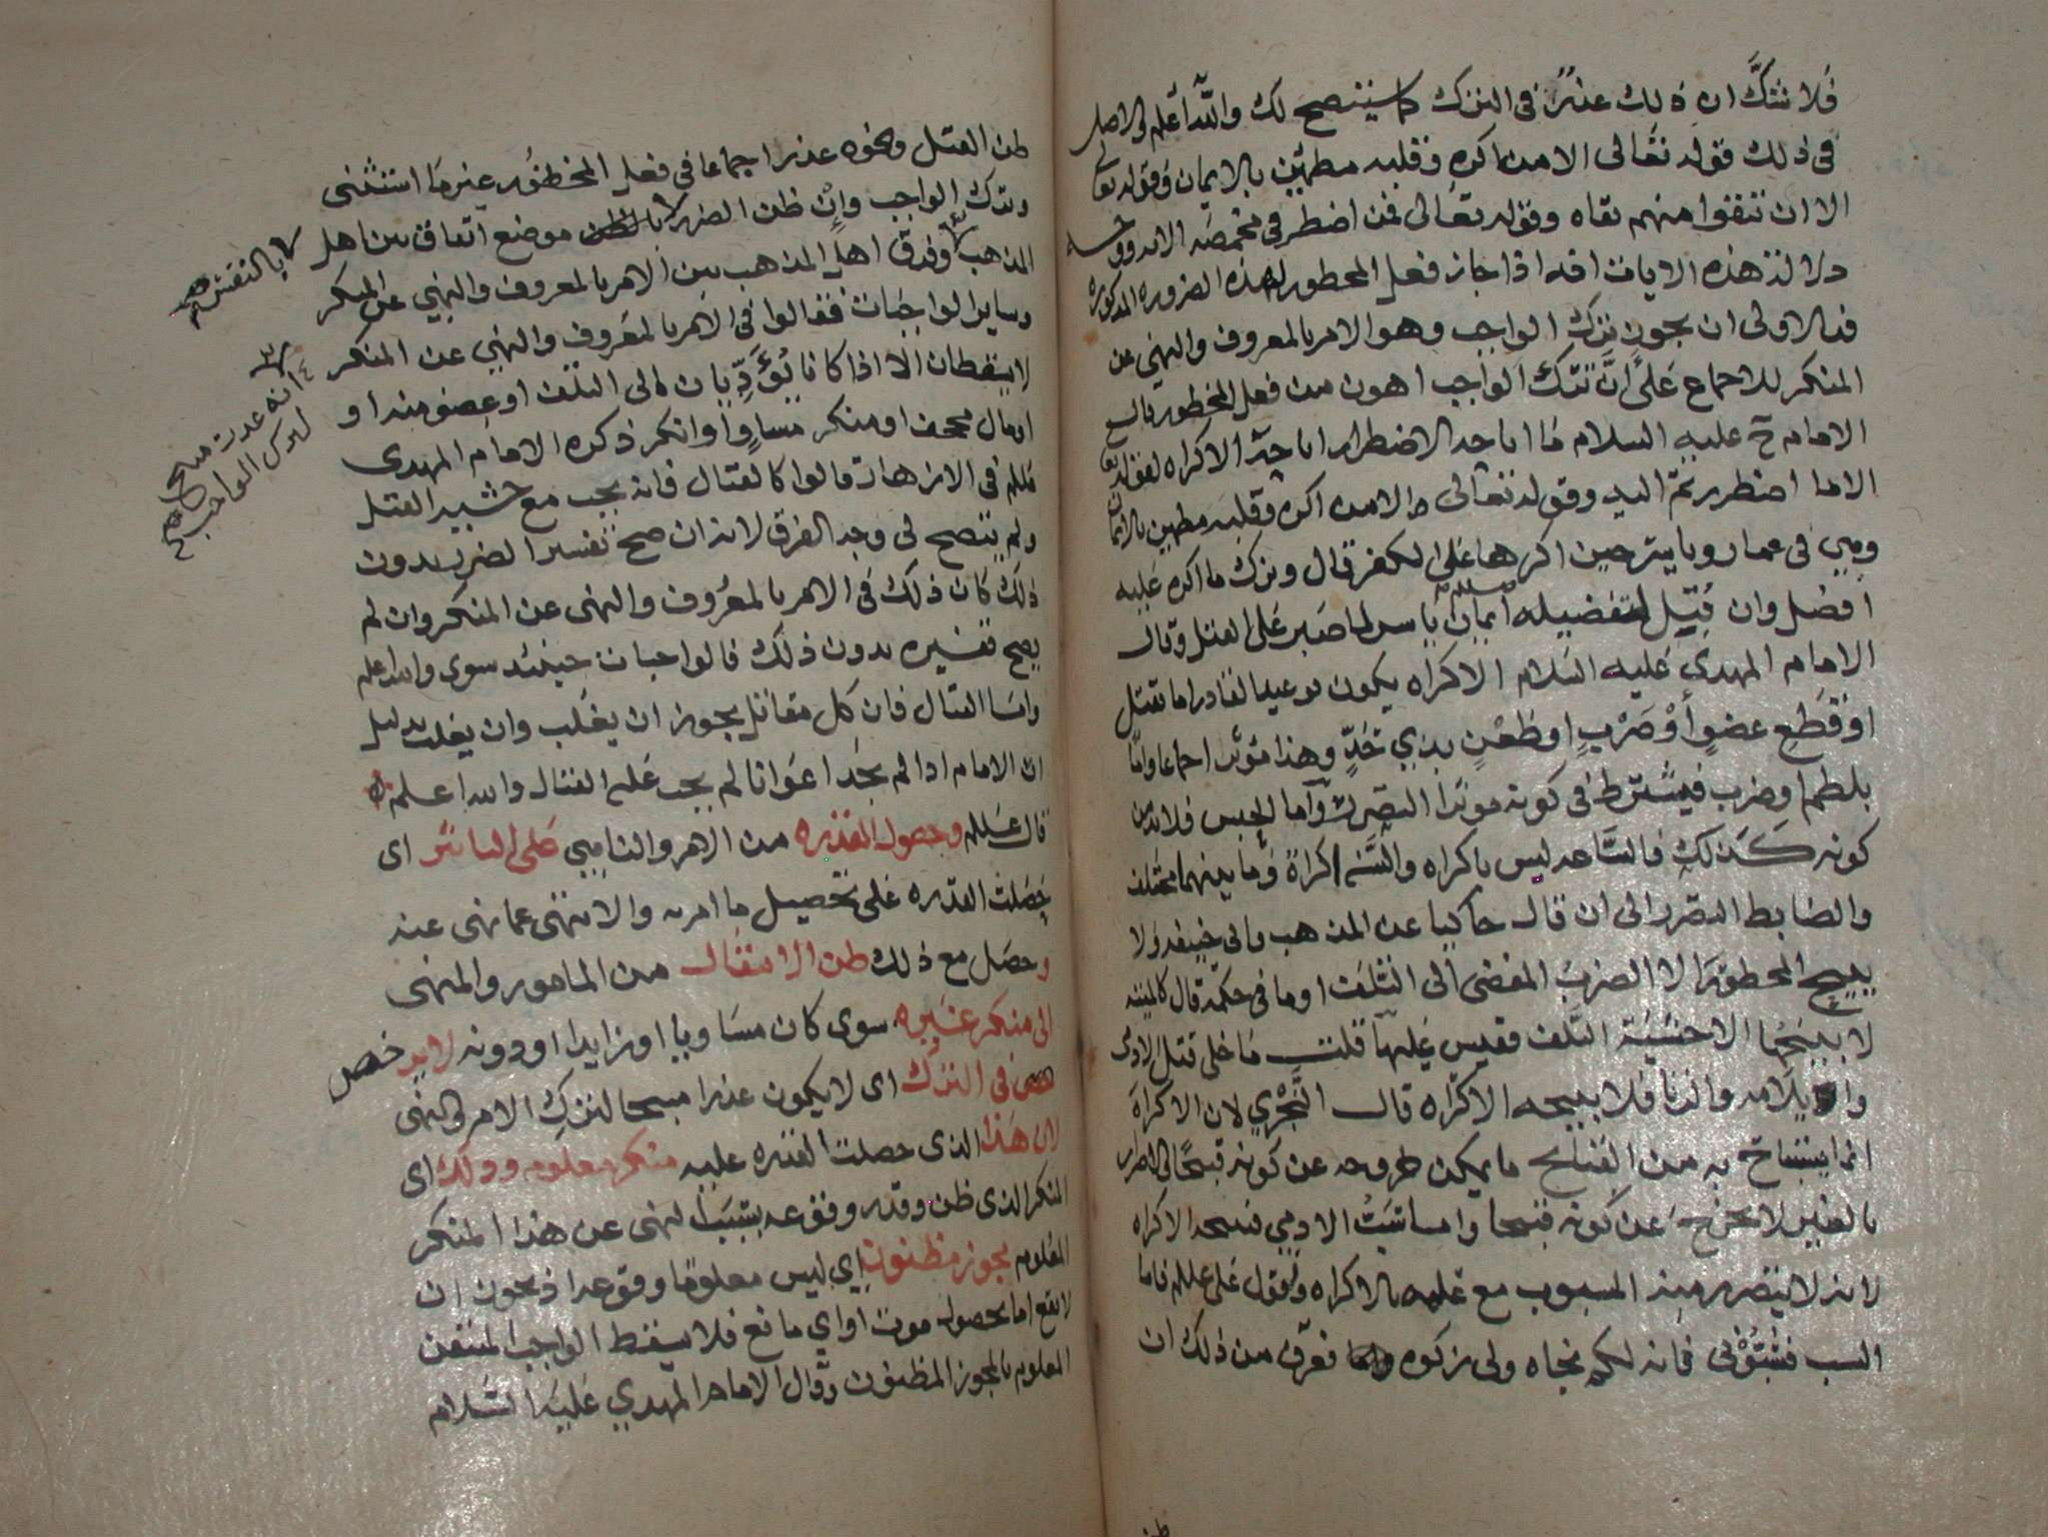 فلا شك ان ذلك عذر في الترك كما سيتضح لك والله اعلم والاصل
في ذلك قوله تعالى الا من اكره وقلبه مطمئن بالايمان وقوله تعالى
الا ان تتقوا منهم تقاه وقوله تعالى فمن اضطر في مخمصه الايه ووجه
دلالة هذه الايات انه اذا جاز فعل المحظور لهذه الضروره المذكوره
فبالاولى ان يجوز ترك الواجب وهو الامر بالمعروف والنهي عن
المنكر للاجماع على ان ترك الواجب اهون من فعل المحظور قال
الامام ح عليه السلام ما اباحه الاضطرار اباحه الاكراه لقوله تعالى
الا ما اضطررتم اليه وقوله تعالى الا من اكره وقلبه مطمئن بالايمان
وهي في عمار وياسر حين اكرها على الكفر قال وترك ما اكره عليه
افضل وان قتل لتفضيله ايمان ياسر لما صبر على القتل وقال
الامام المهدي عليه السلام الاكراه يكون بوعيد القادر اما بقتل
او قطع عضو او ضرب او طعن بذي حد وهذا مؤثر اجماعا واما
بلطم او ضرب فيشترط في كونه مؤثرا التضرر واما الحبس فلا بد من
كونه كذلك فالساعه ليس باكراه والسنه اكراه وما بينهما مختلف
والضابط التضرر الى ان قال حاكيا عن المذهب وابي حنيفه ولا
يبيح المحظور الا الضرب المفضي الى التلف او ما في حكمه قال كالميته
لا يبيحها الا خشية التلف فقيس عليها قلت ما خلى قتل الادمي
وايلامه والزنا فلا يبيحه الاكراه قال النجري لان الاكراه
انما يستباح به من القبائح ما يمكن خروجه عن كونه قبيحا والاضرار
بالغير لا يخرج عن كونه قبيحا واما سب الادمي فيبيحه الاكراه
لانه لا يتضرر منه المسبوب مع علمه بالاكراه ولقول علي عللم فاما
السب فسبوني فانه لكم نجاه ولي زكوه فعرفت من ذلك ان
ظن
ظن القتل ونحوه عذر اجماعا في فعل المحظور غير ما استثني
وترك الواجب وان ظن الضرر موضع اتفاق بين اهل
المذهب وفرق اهل المذهب بين الامر بالمعروف والنهي عن المنكر
وساير الواجبات فقالوا في الامر بالمعروف والنهي عن المنكر
لا يسقطان الا اذا كانا يؤديان الى التلف او عضو منه او
او مال مجحف او منكر مساو او انكر ذكره الامام المهدي
عللم في الازهار قالوا كالقتال فانه يجب مع خشية القتل
ولم يتضح لي وجه الفرق لانه ان صح تفسير الضرر بدون
ذلك كان ذلك في الامر بالمعروف والنهي عن المنكر وان لم
يصح تفسيره بدون ذلك فالواجبات حينئذ سوى والله اعلم
واما القتال فان كل مقاتل يجوز ان يغلب وان يغلب بدليل
ان الامام اذا لم يجد اعوانا لم يجب عليه القتال والله اعلم
قال عللم وحصول القدره من الامر والناهي على التاثير اي
حصلت القدره على تحصيل ما امر به والانتهى عما نهى عنه
وحصل مع ذلك ظن الانتقال من المامور والمنهي
الى منكر غيره سوى كان مساويا او زايدا او دونه لا يرخص
في الترك اي لا يكون عذرا مبيحا لترك الامر والنهي
لان هذا الذي حصلت القدره عليه منكر معلوم وذلك اي
المنكر الذي ظن وقدر وقوعه بسبب النهي عن هذا المنكر
المعلوم يجوز مظنون اي ليس معلوما وقوعه اذ يجوز ان
لا يقع اما بحصول موت او اي مانع فلا يسقط الواجب المتيقن
المعلوم بالمجوز المظنون وقال الامام المهدي عليه السلام
بالنقش صح
انه عذر مبيح
لترك الواجب صح